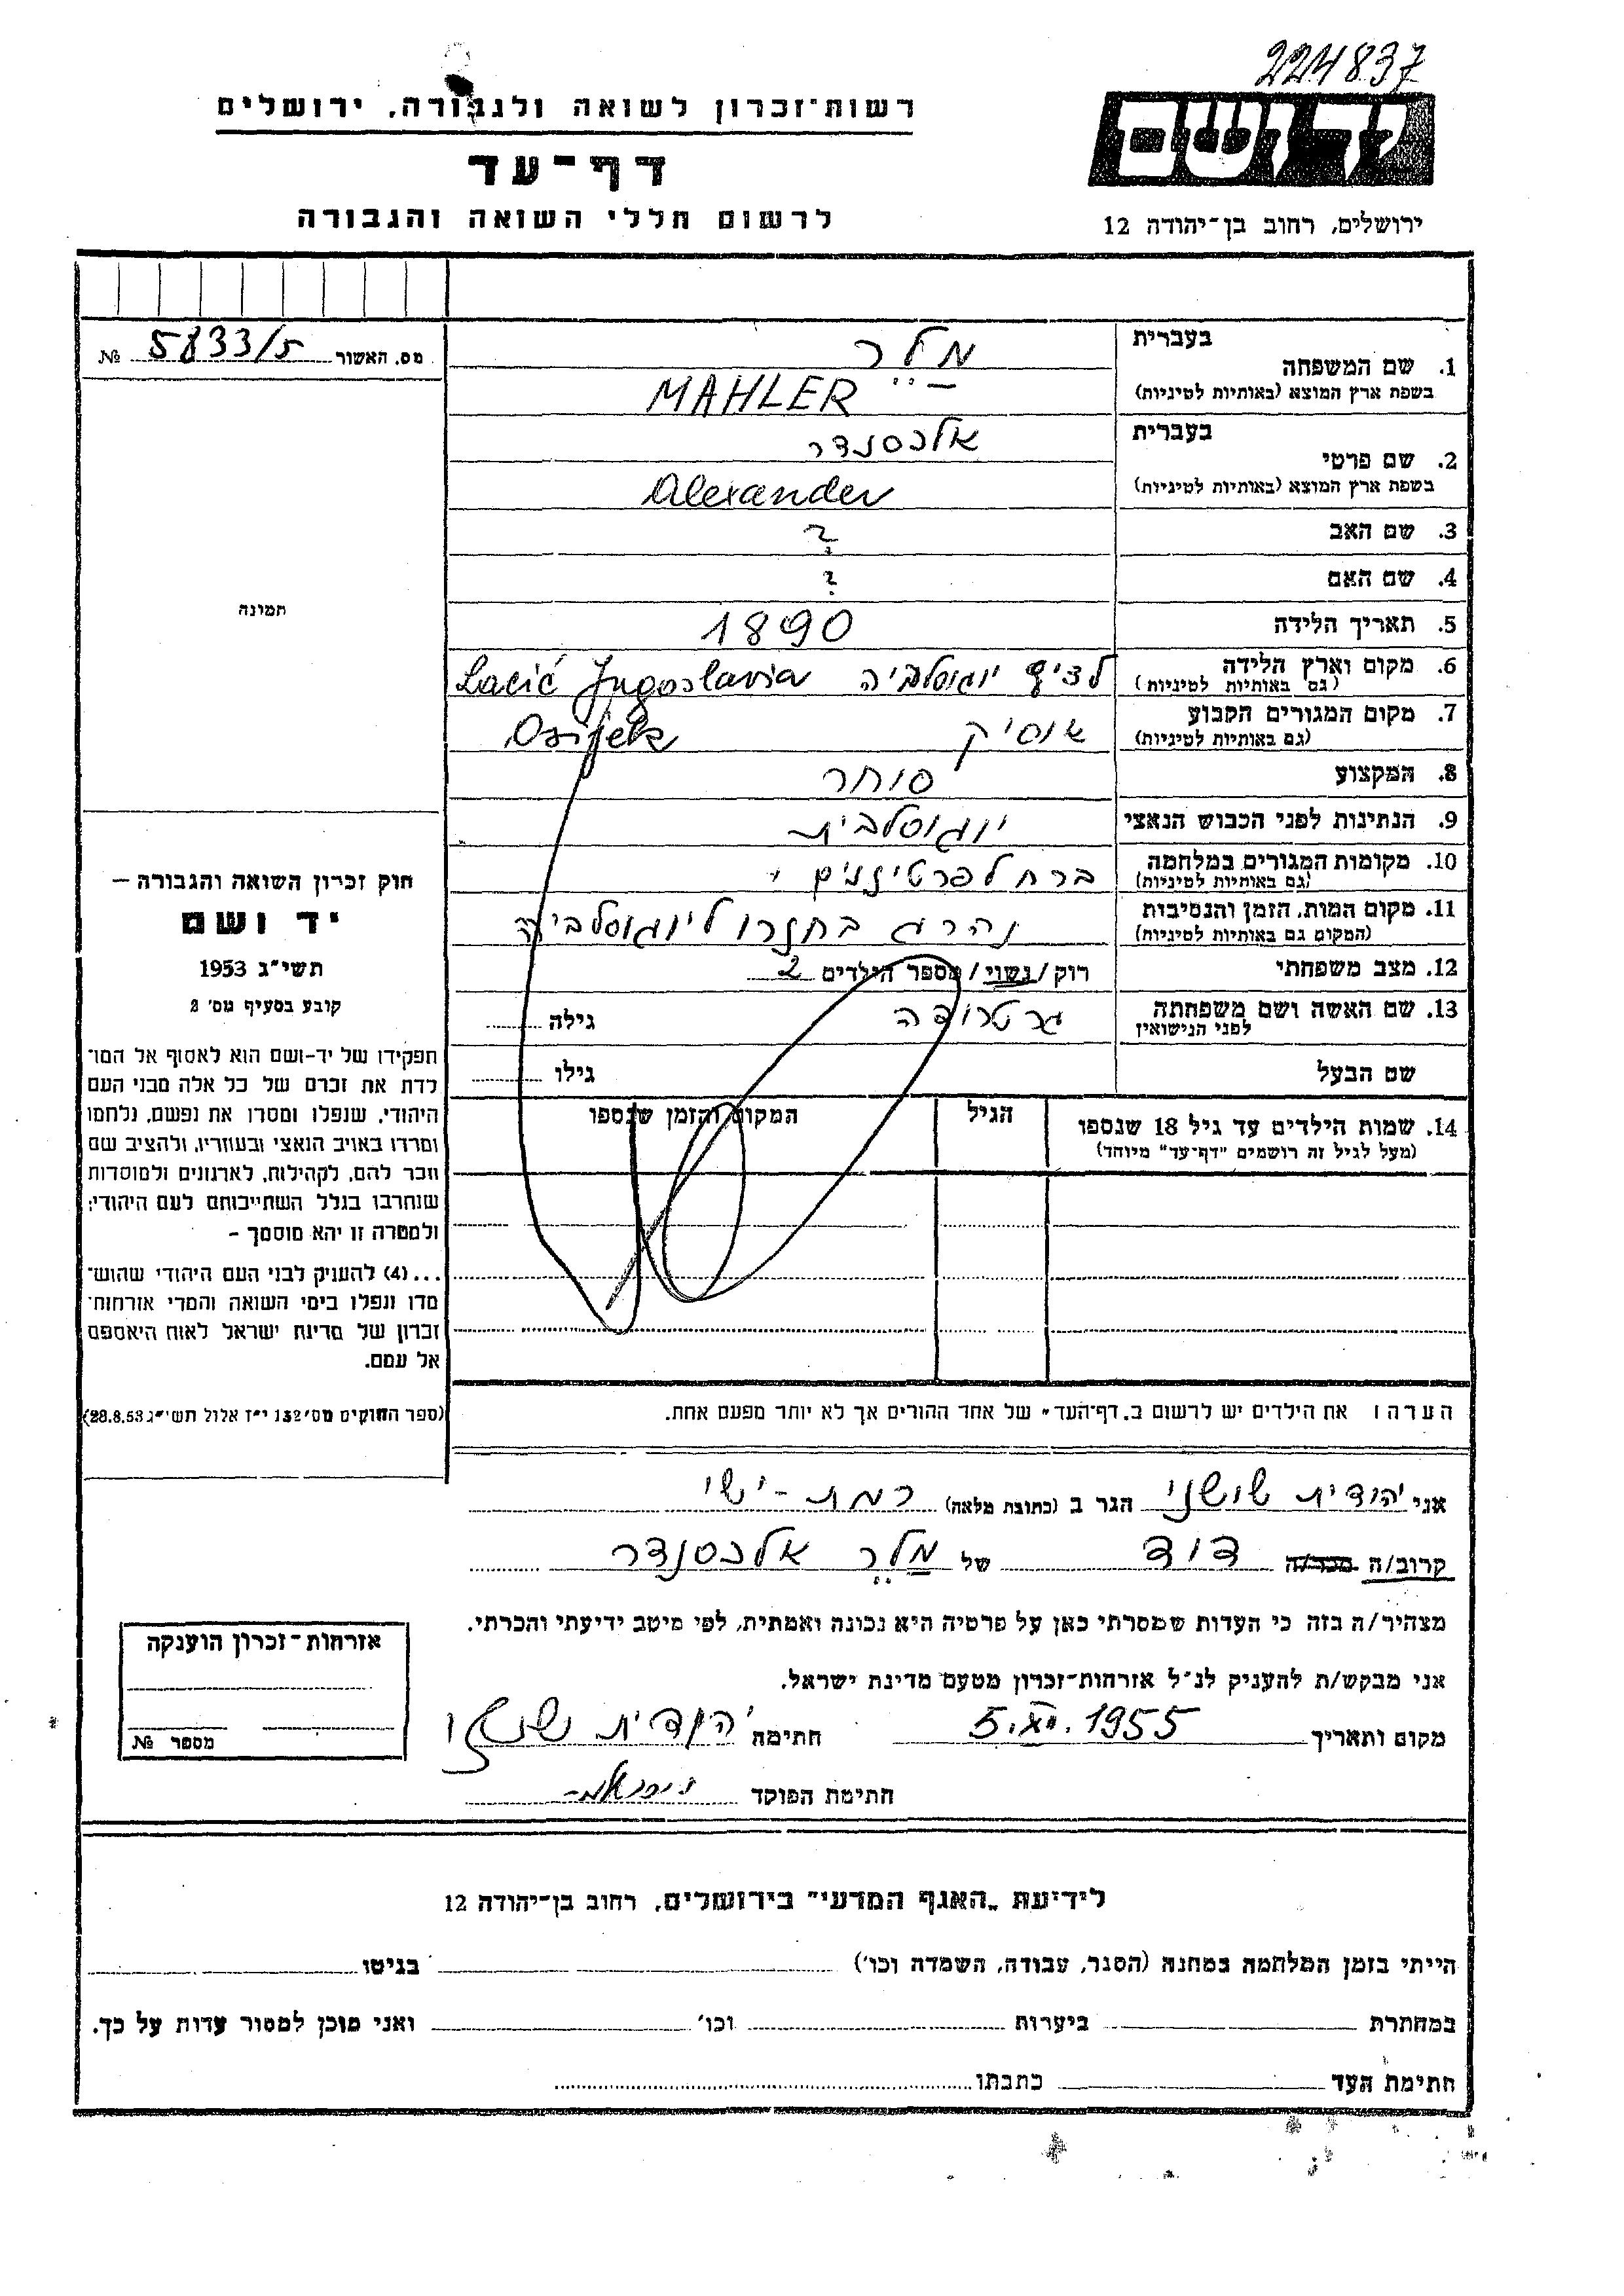 224837
רשות־זכרון לשואה ולגבורה, ירושלים
ידושם
דף־עד
לרשום חללי השואה והגבורה
ירושלים, רחוב בן־יהודה 12
מס. האשור 5833/5 №
בעברית
1. שם המשפחה מלר
בשפת ארץ המוצא (באותיות לטיניות) MAHLER
בעברית
2. שם פרטי אלכסנדר
בשפת ארץ המוצא (באותיות לטיניות) Alexander
3. שם האב ?
4. שם האם ?
5. תאריך הלידה 1890
6. מקום וארץ הלידה
(גם באותיות לטיניות) לציץ יוגוסלביה Lacić Jugoslavia
7. מקום המגורים הקבוע
(גם באותיות לטיניות) אוסיק Osijek
8. המקצוע סוחר
9. הנתינות לפני הכבוש הנאצי יוגוסלבית
10. מקומות המגורים במלחמה
(גם באותיות לטיניות) ברח לפרטיזנים
11. מקום המות, הזמן והנסיבות
(המקום גם באותיות לטיניות) נהרג בחזרו ליוגוסלביה
12. מצב משפחתי רוק/נשוי/מספר הילדים 2
13. שם האשה ושם משפחתה
לפני הנישואין גרטרודה גילה
שם הבעל גילו
14. שמות הילדים עד גיל 18 שנספו הגיל המקום והזמן שנספו
(מעל לגיל זה רושמים "דף־עד" מיוחד)
תמונה
חוק זכרון השואה והגבורה –
יד ושם
תשי״ג 1953
קובע בסעיף מס׳ 2
תפקידו של יד-ושם הוא לאסוף אל המו־
לדת את זכרם של כל אלה מבני העם
היהודי, שנפלו ומסרו את נפשם, נלחמו
ומרדו באויב הנאצי ובעוזריו, ולהציב שם
וזכר להם, לקהילות, לארגונים ולמוסדות
שנחרבו בגלל השתייכותם לעם היהודי;
ולמטרה זו יהא מוסמך –
...(4) להעניק לבני העם היהודי שהוש־
מדו ונפלו בימי השואה והמרי אזרחות־
זכרון של מדינת ישראל לאות היאספם
אל עמם.
(ספר החוקים מס׳ 132 י״ז אלול תשי״ג 28.8.53)
הערה: את הילדים יש לרשום ב„דף־העד״ של אחד ההורים אך לא יותר מפעם אחת.
אני יהודית שושני הגר ב (כתובת מלאה) רמת-ישי
קרוב/ה מכר/ה דוד של מלר אלכסנדר
מצהיר/ה בזה כי העדות שמסרתי כאן על פרטיה היא נכונה ואמתית, לפי מיטב ידיעתי והכרתי.
אני מבקש/ת להעניק לנ״ל אזרחות־זכרון מטעם מדינת ישראל.
מקום ותאריך 5.XI.1955 חתימה יהודית שושני
חתימת הפוקד
אזרחות־זכרון הוענקה
מספר №
לידיעת „האגף המדעי״ בירושלים, רחוב בן־יהודה 12
הייתי בזמן המלחמה במחנה (הסגר, עבודה, השמדה וכו׳) בגיטו
במחתרת ביערות וכו׳ ואני מוכן למסור עדות על כך.
חתימת העד כתבתו